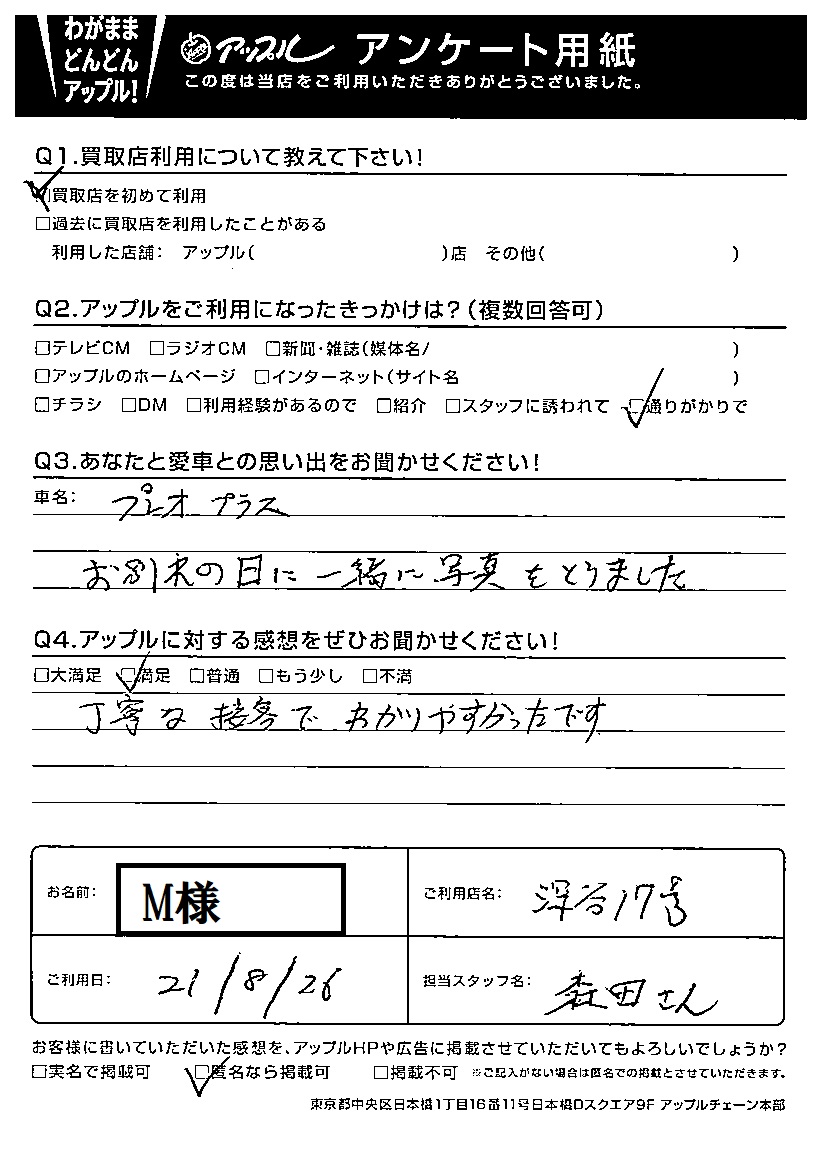 わがまま
どんどん
アップル!
アップル アンケート用紙
この度は当店をご利用いただきありがとうございました。
Q1.買取店利用について教えて下さい!
□買取店を初めて利用
□過去に買取店を利用したことがある
利用した店舗: アップル( )店 その他( )
Q2.アップルをご利用になったきっかけは?(複数回答可)
□テレビCM □ラジオCM □新聞・雑誌(媒体名/ )
□アップルのホームページ □インターネット(サイト名 )
□チラシ □DM □利用経験があるので □紹介 □スタッフに誘われて □通りがかりで
Q3.あなたと愛車との思い出をお聞かせください!
車名: プレオ プラス
お別れの日に一緒に写真をとりました
Q4.アップルに対する感想をぜひお聞かせください!
□大満足 □満足 □普通 □もう少し □不満
丁寧な接客でわかりやすかったです
お名前: M様
ご利用店名: 深谷17号
ご利用日: 21/8/26
担当スタッフ名: 森田さん
お客様に書いていただいた感想を、アップルHPや広告に掲載させていただいてもよろしいでしょうか?
□実名で掲載可 □匿名なら掲載可 □掲載不可 ※ご記入がない場合は匿名での掲載とさせていただきます。
東京都中央区日本橋1丁目16番11号日本橋Dスクエア9F アップルチェーン本部